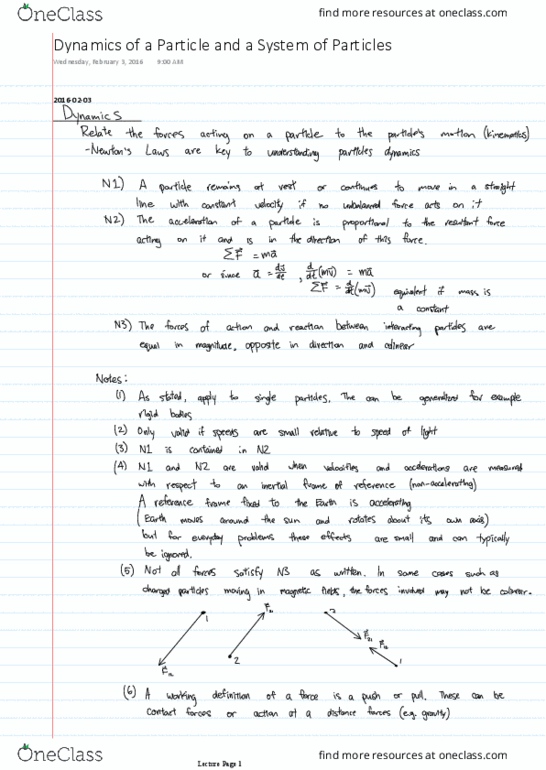 OneClass find more resources at oneclass.com
Dynamics of a Particle and a System of Particles
Wednesday, February 3, 2016 9:00 AM
2016-02-03
Dynamics
Relate the forces acting on a particle to the particle's motion (kinematics)
-Newton's Laws are key to understanding particles dynamics
N1) A particle remains at rest or continues to move in a straight
line with constant velocity if no unbalanced force acts on it
N2) The acceleration of a particle is proportional to the resultant force
acting on it and is in the direction of this force.
ΣF⃗ = ma⃗
or since a⃗ = dv⃗/dt , d/dt(mv⃗) = ma⃗
ΣF⃗ = d/dt(mv⃗) equivalent if mass is
a constant
N3) The forces of action and reaction between interacting particles are
equal in magnitude, opposite in direction and colinear
Notes:
(1) As stated, apply to single particles. The can be generalized for example
rigid bodies
(2) Only valid if speeds are small relative to speed of light
(3) N1 is contained in N2
(4) N1 and N2 are valid when velocities and accelerations are measured
with respect to an inertial frame of reference (non-accelerating)
A reference frame fixed to the Earth is accelerating
(Earth moves around the sun and rotates about its own axis)
but for everyday problems these effects are small and can typically
be ignored.
(5) Not all forces satisfy N3 as written. In some cases such as
charged particles moving in magnetic fields, the forces involved may not be colinear.
1 F⃗21 2
F⃗21 F⃗12
F⃗12 2 1
(6) A working definition of a force is a push or pull. These can be
contact forces or action at a distance forces (e.g. gravity)
OneClass find more resources at oneclass.com
Lecture Page 1